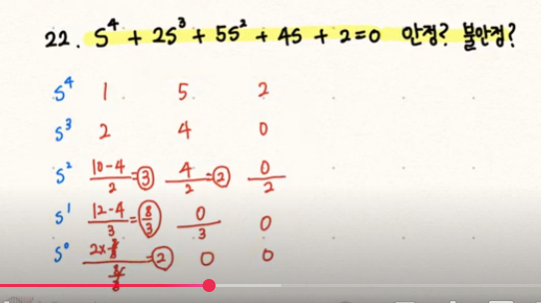 22. S⁴ + 2S³ + 5S² + 4S + 2 = 0 안정? 불안정?
S⁴ 1 5 2
S³ 2 4 0
S² (10-4)/2 = 3 4/2 = 2 0/2
S¹ (12-4)/3 = 8/3 0/3 0
S⁰ (2×8/3)/(8/3) = 2 0 0